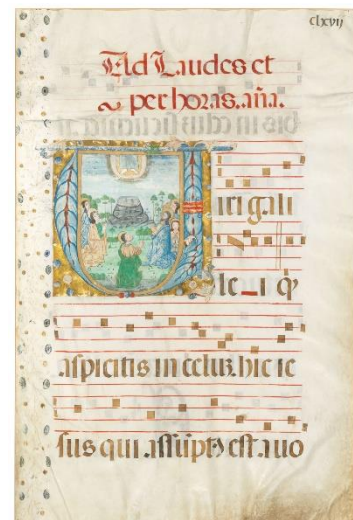 clxvij
Ad Laudes et
per horas. aña.
Viri gali
le_i qͥ
aspicitis in celuꝫ. hic ie
sus qui assūptꝰ est. a uo